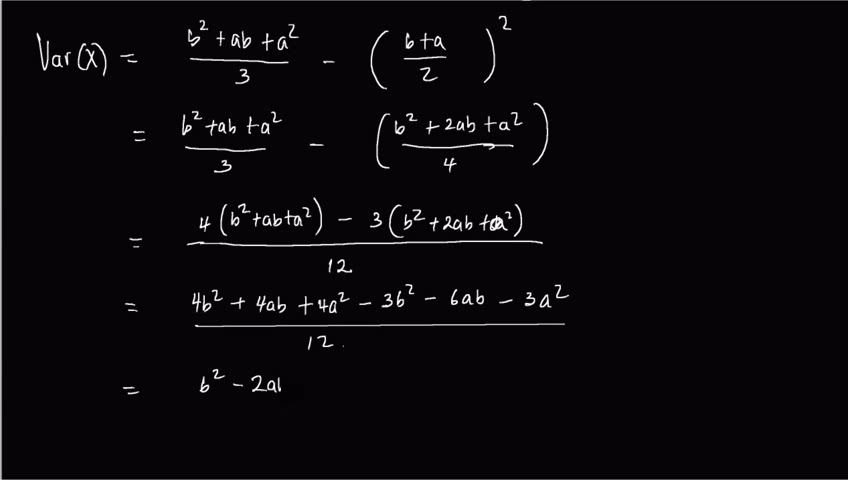 Var(X) = (b² + ab + a²)/3 - ((b+a)/2)²
= (b² + ab + a²)/3 - ((b² + 2ab + a²)/4)
= (4(b² + ab + a²) - 3(b² + 2ab + a²))/12
= (4b² + 4ab + 4a² - 3b² - 6ab - 3a²)/12
= b² - 2a